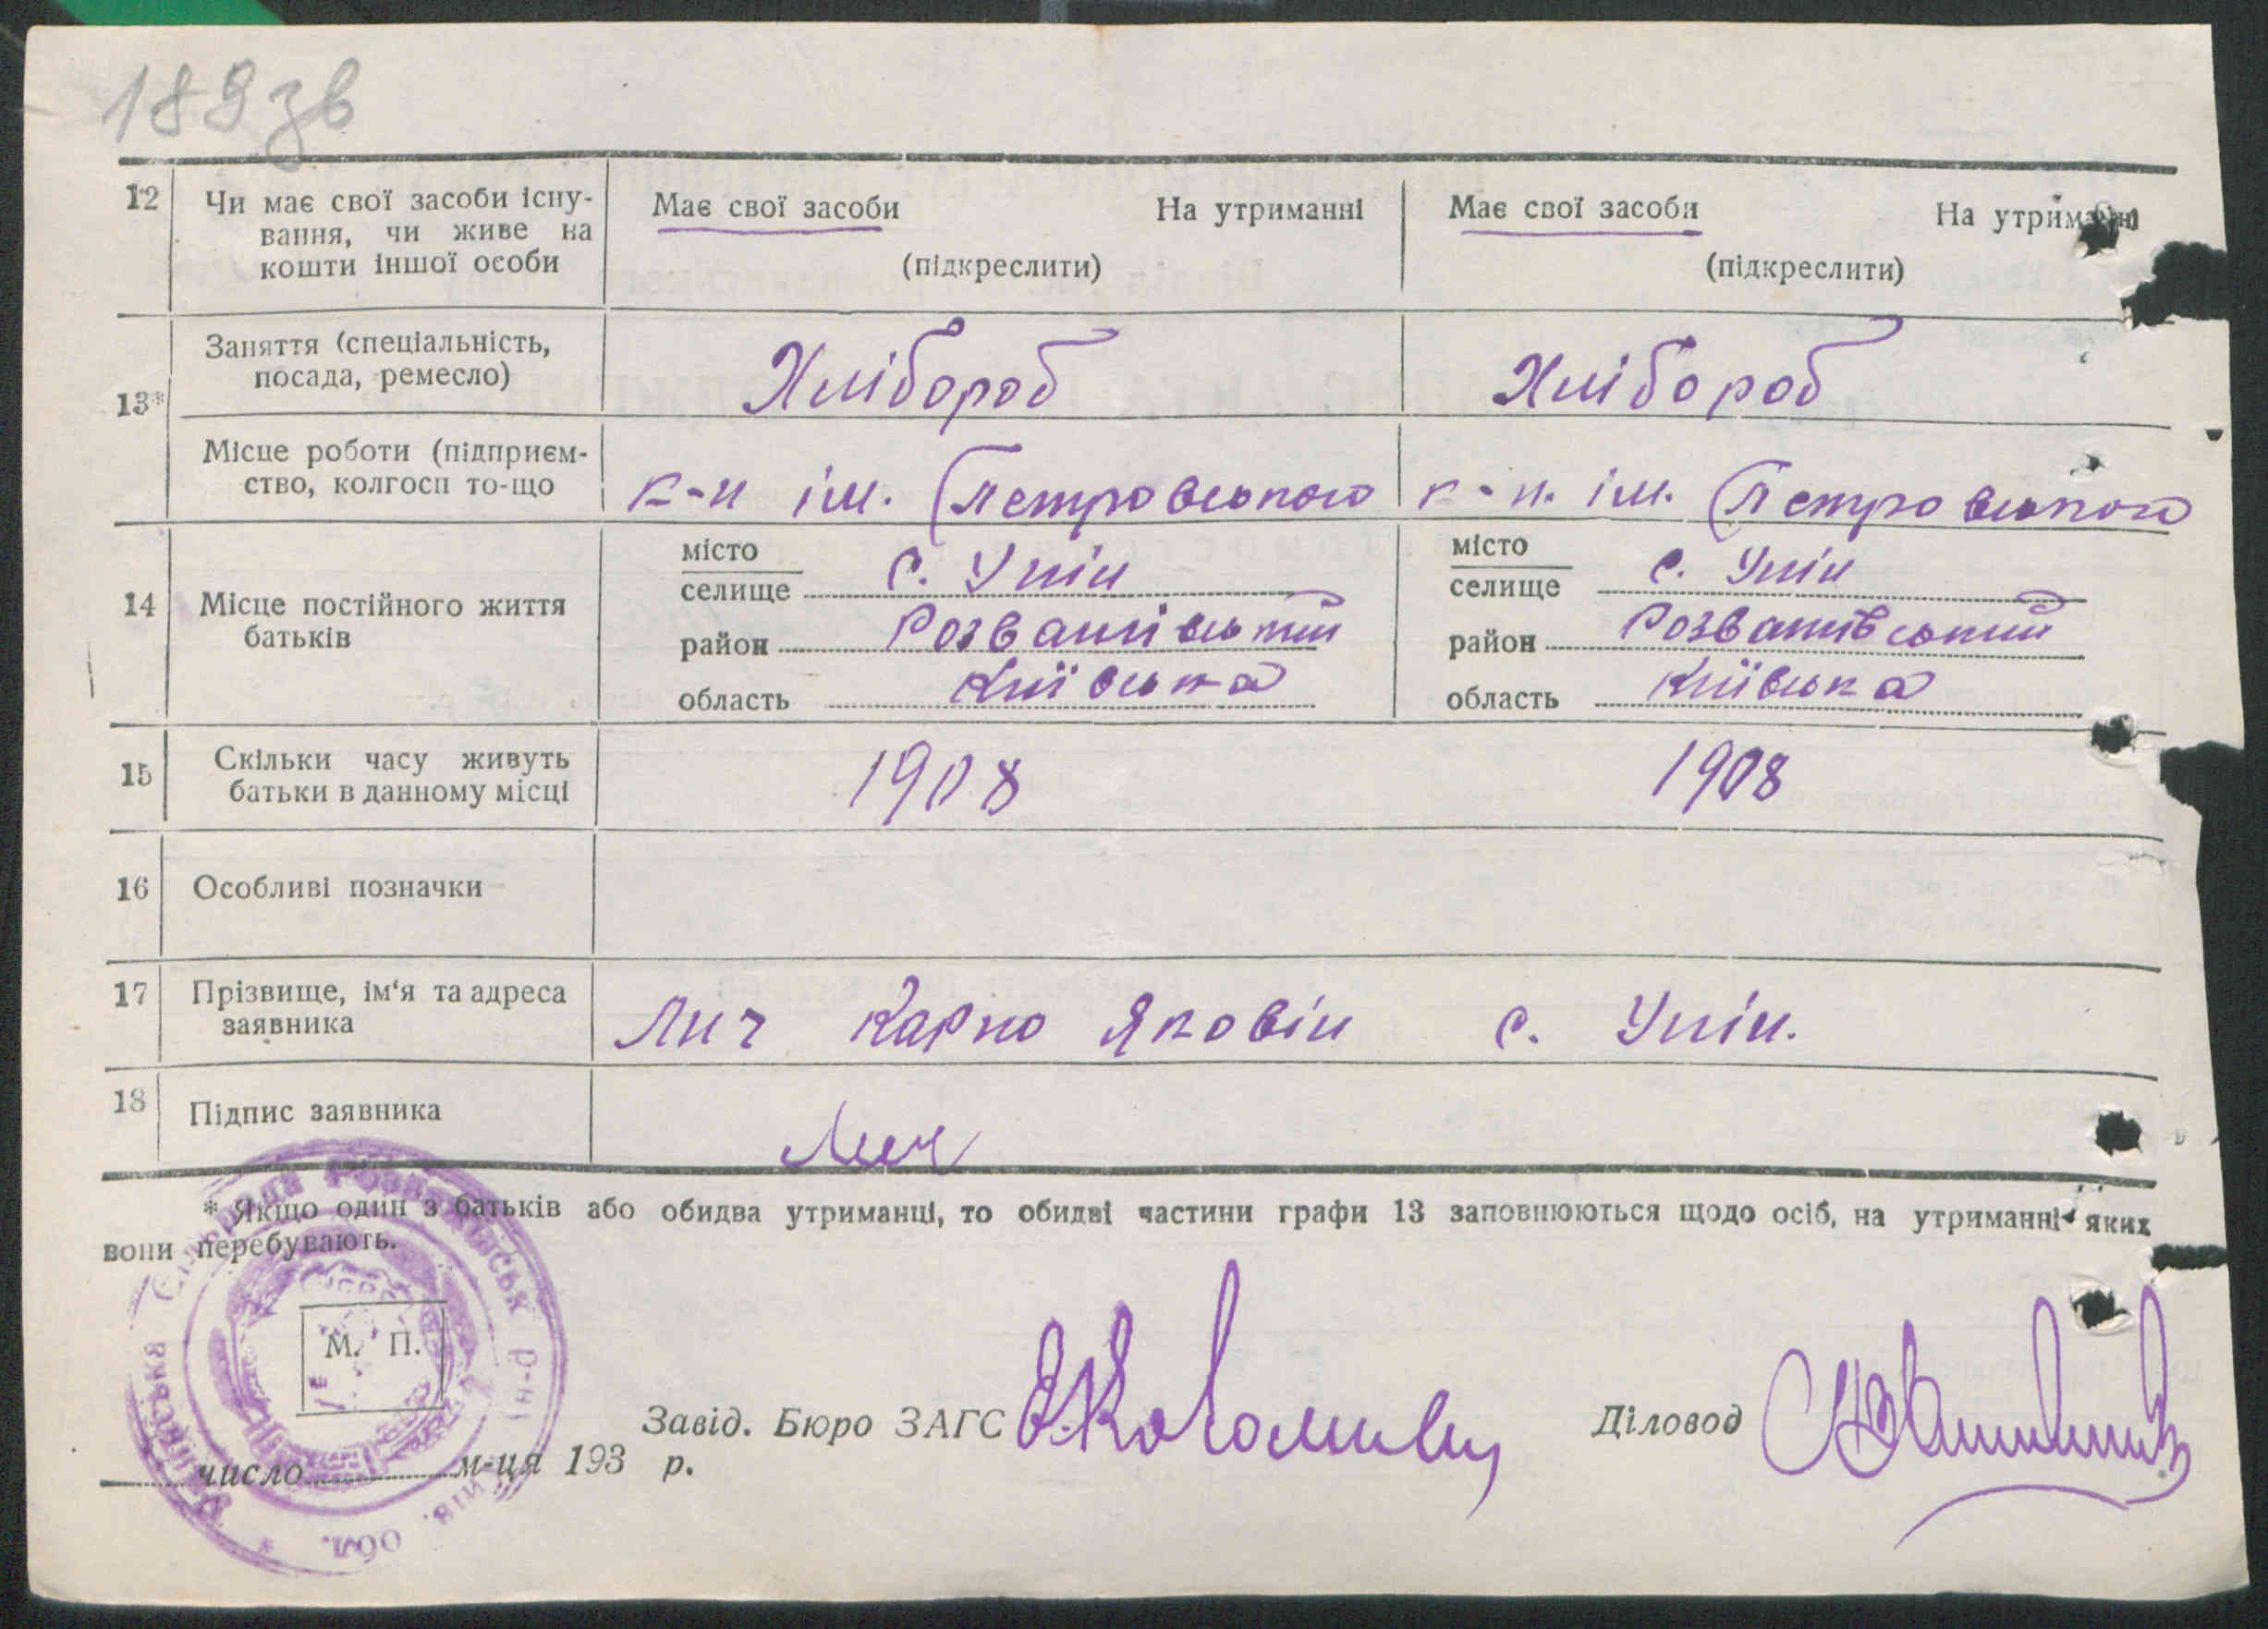 189 зв
12 Чи має свої засоби існу-
вання, чи живе на
кошти іншої особи
Має свої засоби На утриманні
(підкреслити)
Має свої засоби На утриманні
(підкреслити)
13*
Заняття (спеціальність,
посада, ремесло)
Хлібороб
Хлібороб
Місце роботи (підприєм-
ство, колгосп то-що
к-п ім. Петровського
к-п. ім. Петровського
14 Місце постійного життя
батьків
місто
селище с.
район Розважівський
область Київська
місто
селище с.
район Розважівський
область Київська
15 Скільки часу живуть
батьки в данному місці
1908 1908
16 Особливі позначки
17 Прізвище, ім'я та адреса
заявника
Лич Карпо Яковін с.
18 Підпис заявника
Лич
* Якщо один з батьків або обидва утриманці, то обидві частини графи 13 заповнюються щодо осіб, на утриманні яких
вони перебувають.
М. П.
р-ну
обл.
Завід. Бюро ЗАГС
Діловод
число м-ця 193 р.